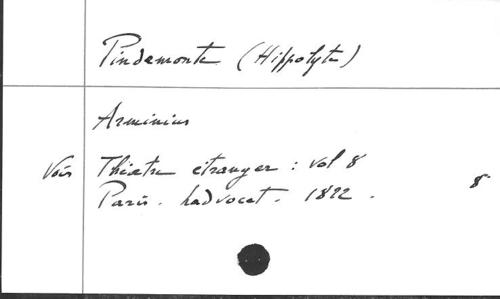 Pindemonte (Hippolyte)
Arminius
Vois Théatre étranger : vol 8
Paris. Ladvocat. 1822. 8°